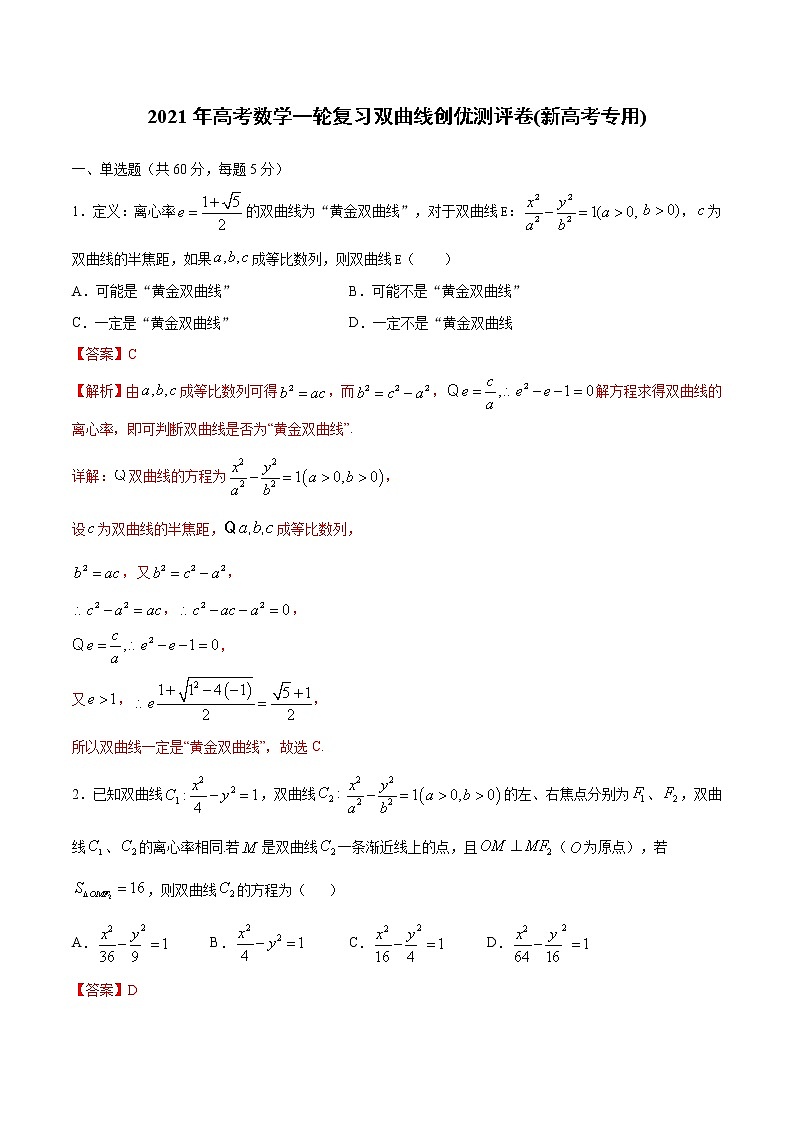 2021年高考数学一轮复习双曲线创优测评卷(新高考专用)
一、单选题（共60分，每题5分）
1.定义：离心率 e = \frac{1+\sqrt{5}}{2} 的双曲线为“黄金双曲线”，对于双曲线E：\frac{x^2}{a^2} - \frac{y^2}{b^2} = 1(a > 0, b > 0)，c 为
双曲线的半焦距，如果 a,b,c 成等比数列，则双曲线E（　　）
A．可能是“黄金双曲线”　　B．可能不是“黄金双曲线”
C．一定是“黄金双曲线”　　D．一定不是“黄金双曲线
【答案】C
【解析】由 a,b,c 成等比数列可得 b^2 = ac，而 b^2 = c^2 - a^2，Q e = \frac{c}{a}, ∴ e^2 - e - 1 = 0 解方程求得双曲线的
离心率，即可判断双曲线是否为“黄金双曲线”.
详解：Q 双曲线的方程为 \frac{x^2}{a^2} - \frac{y^2}{b^2} = 1(a > 0, b > 0)，
设 c 为双曲线的半焦距，Q a,b,c 成等比数列，
b^2 = ac，又 b^2 = c^2 - a^2，
∴ c^2 - a^2 = ac，∴ c^2 - ac - a^2 = 0，
Q e = \frac{c}{a}, ∴ e^2 - e - 1 = 0，
又 e > 1，∴ e \frac{1+\sqrt{1^2 - 4(-1)}}{2} = \frac{\sqrt{5}+1}{2}，
所以双曲线一定是“黄金双曲线”，故选 C.
2.已知双曲线 C_1 : \frac{x^2}{4} - y^2 = 1，双曲线 C_2 : \frac{x^2}{a^2} - \frac{y^2}{b^2} = 1(a > 0, b > 0) 的左、右焦点分别为 F_1、F_2，双曲
线 C_1、C_2 的离心率相同.若 M 是双曲线 C_2 一条渐近线上的点，且 OM ⊥ MF_2（O 为原点），若
S_{△OMF_2} = 16，则双曲线 C_2 的方程为（　　）
A．\frac{x^2}{36} - \frac{y^2}{9} = 1　　B．\frac{x^2}{4} - y^2 = 1　　C．\frac{x^2}{16} - \frac{y^2}{4} = 1　　D．\frac{x^2}{64} - \frac{y^2}{16} = 1
【答案】D